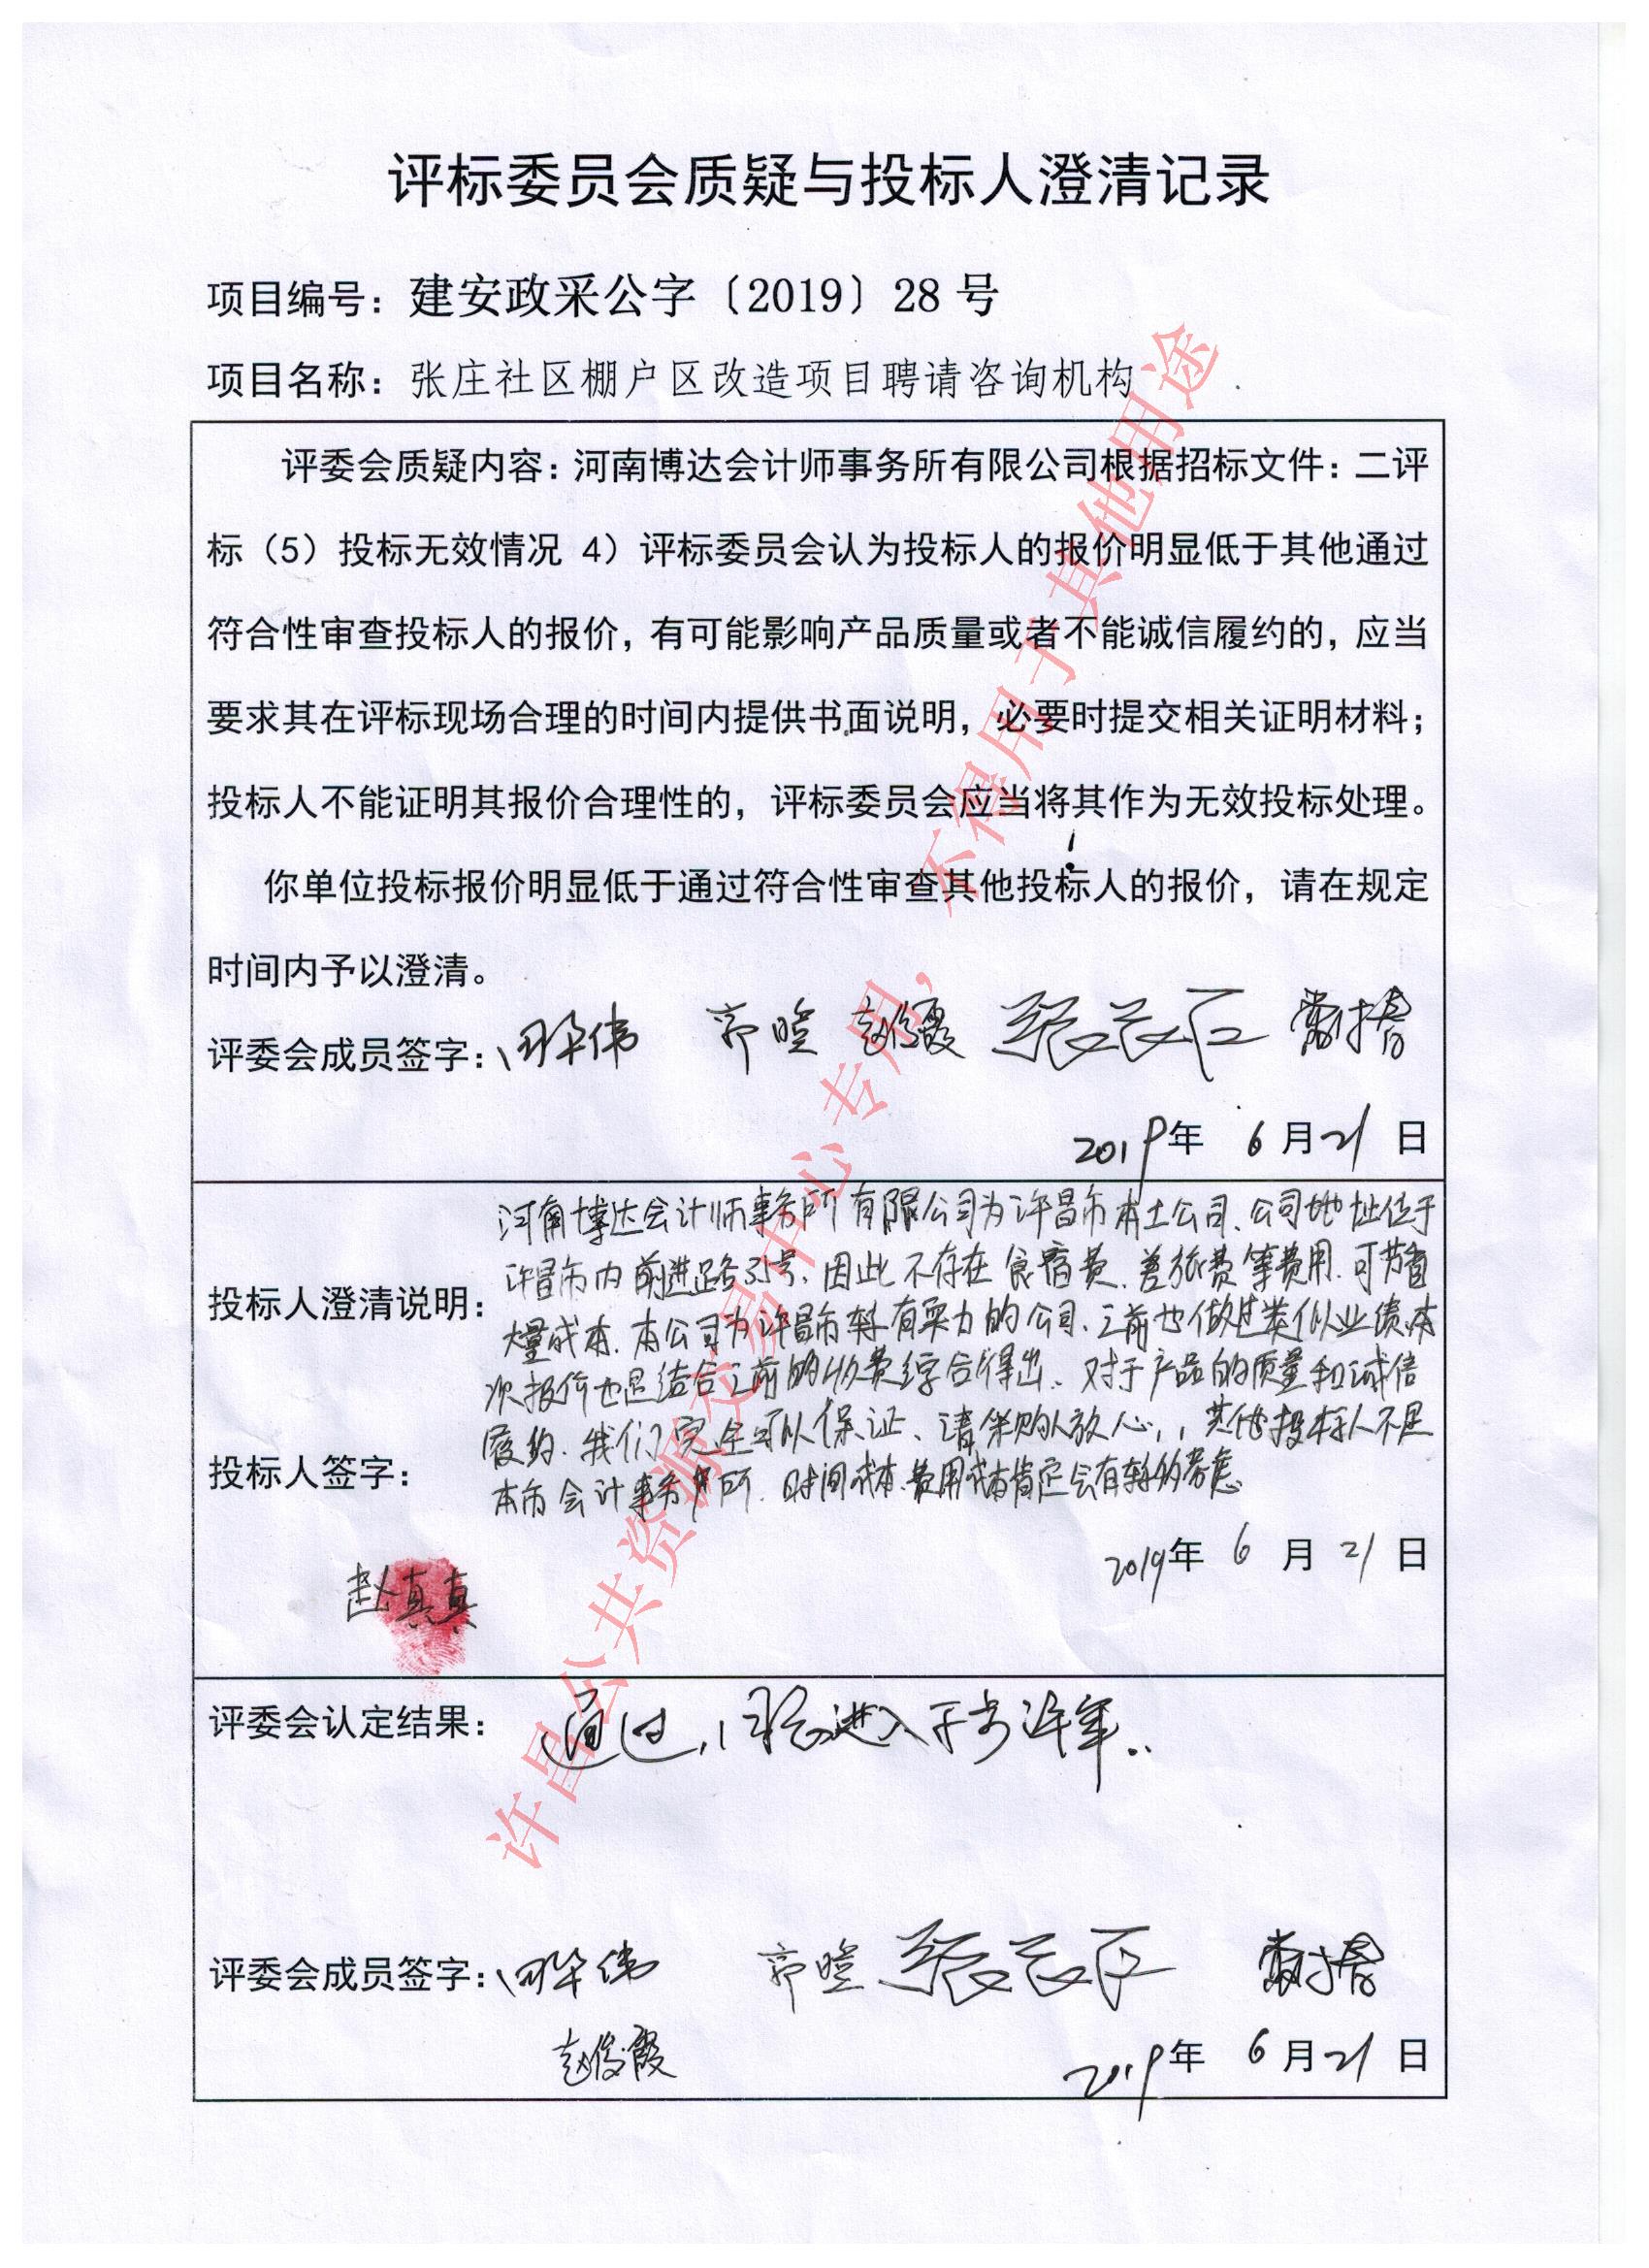 评标委员会质疑与投标人澄清记录
项目编号：建安政采公字〔2019〕28 号
项目名称：张庄社区棚户区改造项目聘请咨询机构
评委会质疑内容：河南博达会计师事务所有限公司根据招标文件：二评
标（5）投标无效情况 4）评标委员会认为投标人的报价明显低于其他通过
符合性审查投标人的报价，有可能影响产品质量或者不能诚信履约的，应当
要求其在评标现场合理的时间内提供书面说明，必要时提交相关证明材料；
投标人不能证明其报价合理性的，评标委员会应当将其作为无效投标处理。
你单位投标报价明显低于通过符合性审查其他投标人的报价，请在规定
时间内予以澄清。
评委会成员签字：
2019年 6 月 21 日
河南博达会计师事务所有限公司为许昌市本土公司、公司地址位于
投标人澄清说明：
许昌市内前进路35号、因此不存在食宿费、差旅费等费用、可节省
大量成本、本公司为许昌市较有实力的公司、之前也做过类似业绩、本
次报价也是结合之前的收费综合得出、对于产品的质量和诚信
履约、我们完全可以保证、请采购人放心，其他投标人不是
投标人签字：
本市会计事务所、时间成本、费用成本肯定会有较多考虑
2019年 6 月 21 日
赵真真
评委会认定结果：通过，同意进入下步评审。
评委会成员签字：
赵俊霞
2019年 6 月 21 日
许昌公共资源交易中心专用，不得用于其他用途